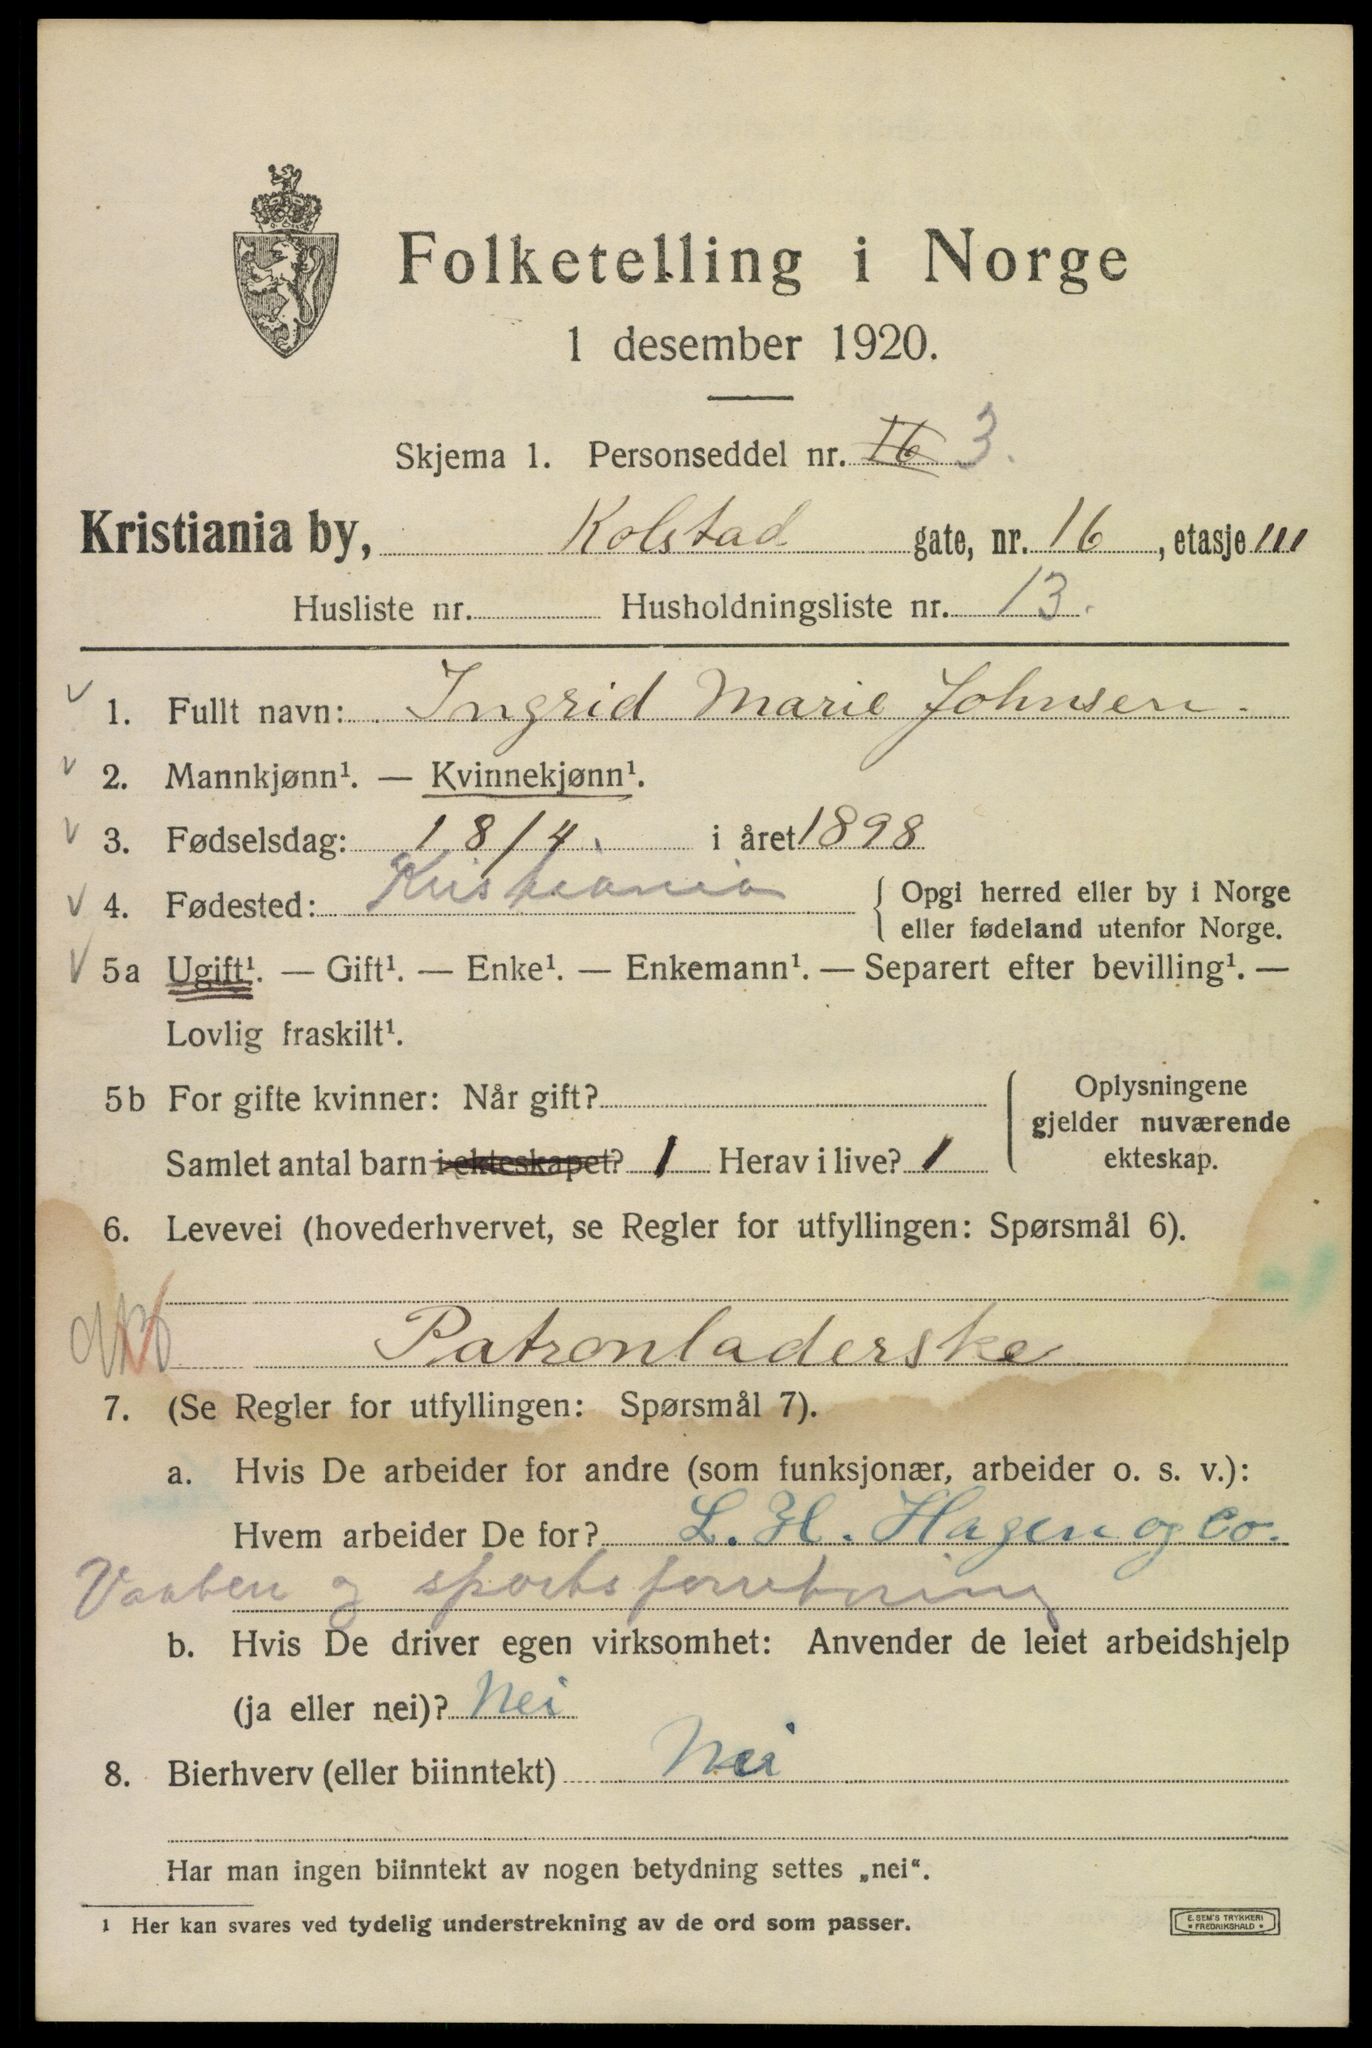 Folketelling i Norge
1 desember 1920.
Skjema 1. Personseddel nr. 16 3.
Kristiania by, Kolstad gate, nr. 16, etasje III
Husliste nr. Husholdningsliste nr. 13.
1. Fullt navn: Ingrid Marie Johnsen.
2. Mannkjønn¹. — Kvinnekjønn¹.
3. Fødselsdag: 18/4. i året 1898
4. Fødested: Kristiania { Opgi herred eller by i Norge
eller fødeland utenfor Norge.
5a Ugift¹. — Gift¹. — Enke¹. — Enkemann¹. — Separert efter bevilling¹. —
Lovlig fraskilt¹.
5b For gifte kvinner: Når gift? ( Oplysningene
gjelder nuværende
Samlet antal barn i ekteskapet? 1 Herav i live? 1 ekteskap.
6. Levevei (hovederhvervet, se Regler for utfyllingen: Spørsmål 6).
Patronladerske
7. (Se Regler for utfyllingen: Spørsmål 7).
a. Hvis De arbeider for andre (som funksjonær, arbeider o. s. v.):
Hvem arbeider De for? L. H. Hagen og Co.
Vaaben og sportsforretning
b. Hvis De driver egen virksomhet: Anvender de leiet arbeidshjelp
(ja eller nei)? Nei
8. Bierhverv (eller biinntekt) Nei
Har man ingen biinntekt av nogen betydning settes „nei“.
1 Her kan svares ved tydelig understrekning av de ord som passer.
E. SEM'S TRYKKERI
* FREDRIKSHALD *